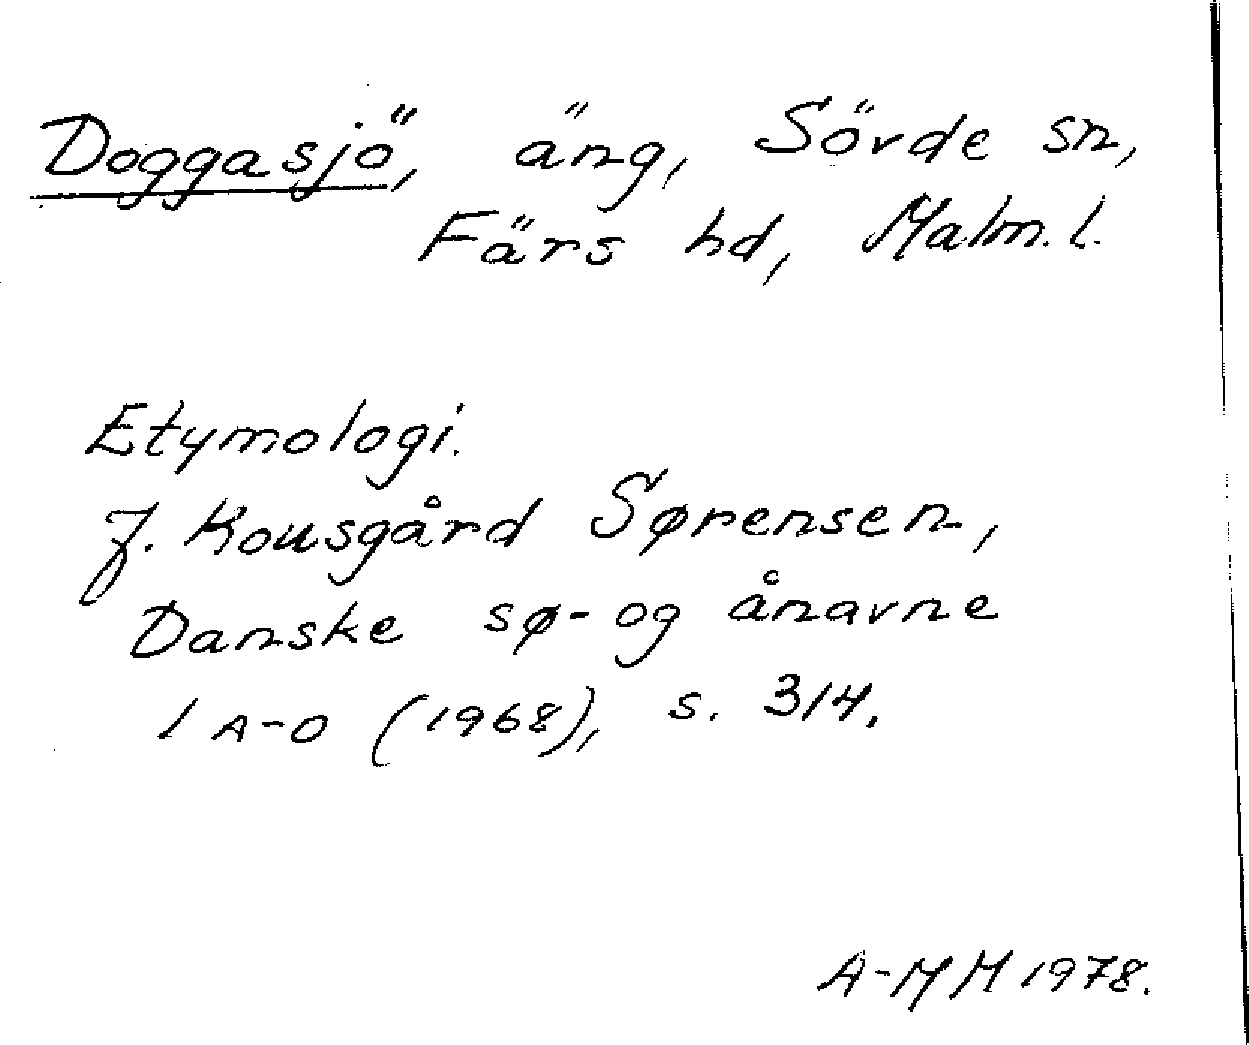 Doggasjö, äng, Sövde sn,
Färs hd, Malm. l.
Etymologi.
J. Kousgård Sørensen,
Danske sø- og ånavne
1 A-O (1968), s. 314.
A-MM 1978.